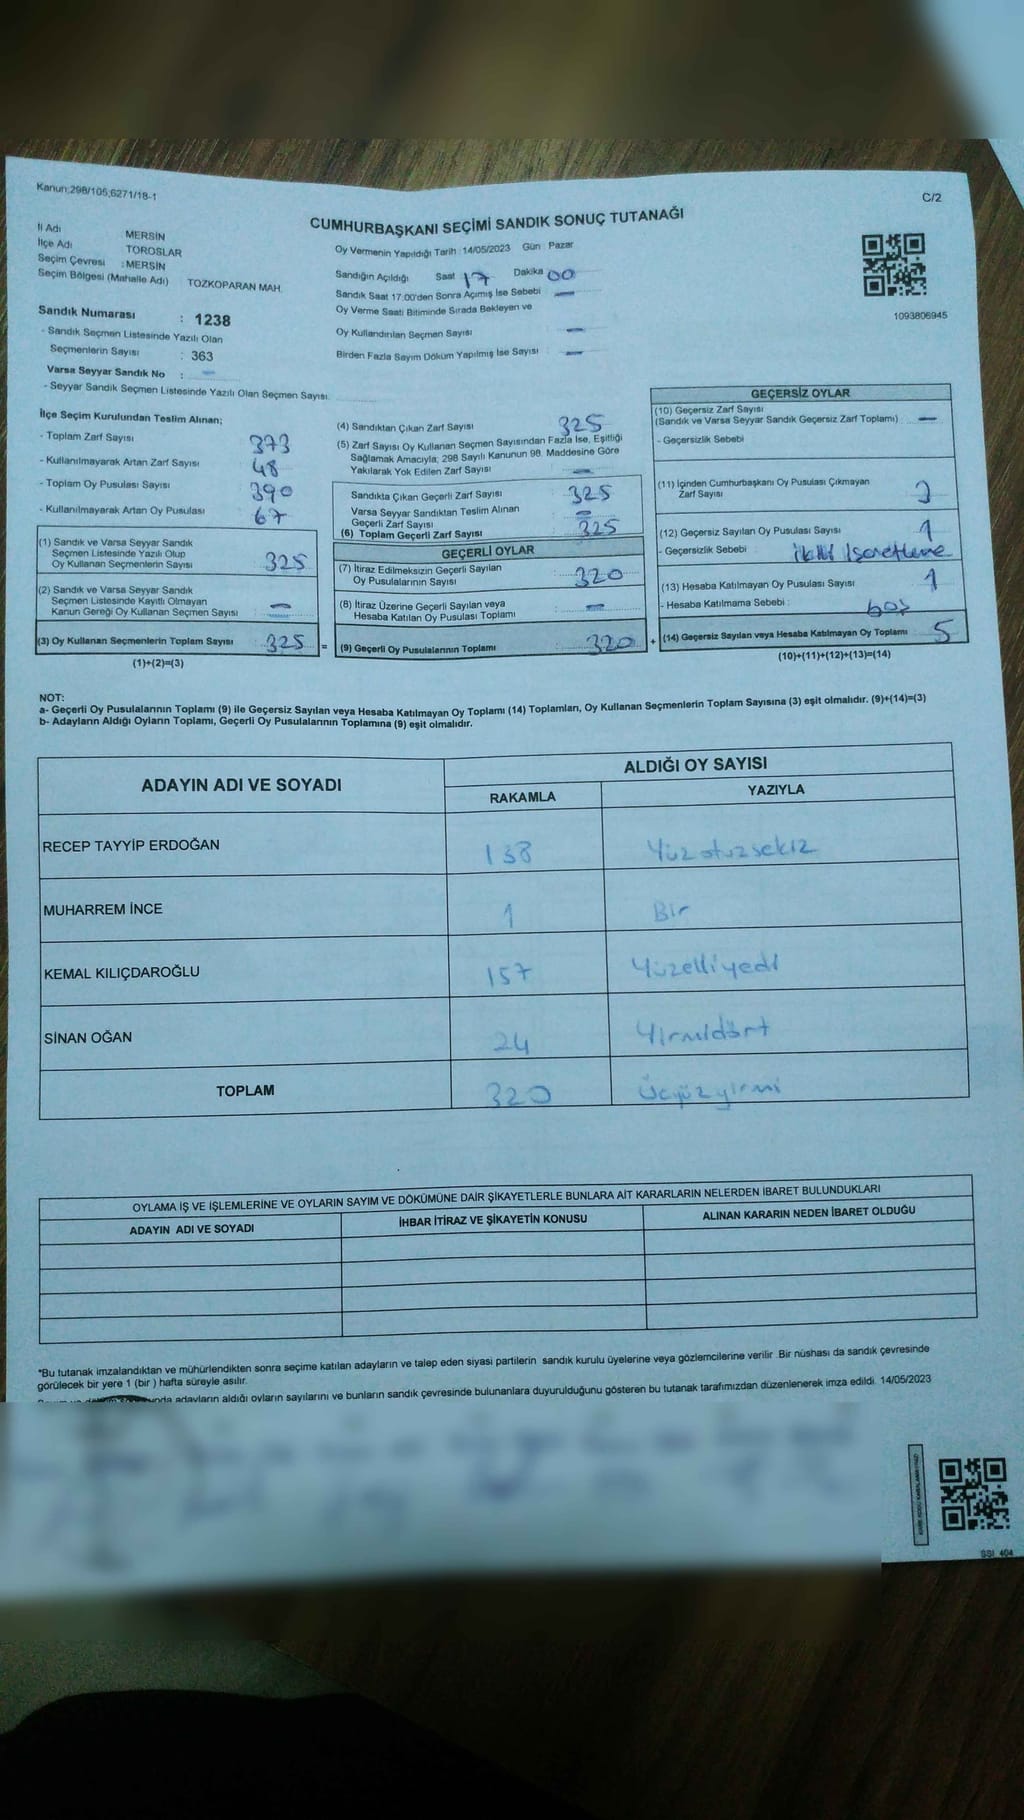 Kanun:298/105;6271/18-1
C/2
CUMHURBAŞKANI SEÇİMİ SANDIK SONUÇ TUTANAĞI
İl Adı : MERSİN
İlçe Adı : TOROSLAR
Seçim Çevresi : MERSİN
Seçim Bölgesi (Mahalle Adı) TOZKOPARAN MAH.
Oy Vermenin Yapıldığı Tarih : 14/05/2023 Gün : Pazar
Sandığın Açıldığı Saat 17 Dakika 00
Sandık Saat 17:00'den Sonra Açımış İse Sebebi —
Oy Verme Saati Bitiminde Sırada Bekleyen ve
Oy Kullandırılan Seçmen Sayısı : —
Birden Fazla Sayım Döküm Yapılmış İse Sayısı : —
1093806945
Sandık Numarası : 1238
- Sandık Seçmen Listesinde Yazılı Olan
Seçmenlerin Sayısı : 363
Varsa Seyyar Sandık No : —
- Seyyar Sandık Seçmen Listesinde Yazılı Olan Seçmen Sayısı:
İlçe Seçim Kurulundan Teslim Alınan;
- Toplam Zarf Sayısı 373
- Kullanılmayarak Artan Zarf Sayısı 48
- Toplam Oy Pusulası Sayısı 390
- Kullanılmayarak Artan Oy Pusulası 67
(1) Sandık ve Varsa Seyyar Sandık
Seçmen Listesinde Yazılı Olup
Oy Kullanan Seçmenlerin Sayısı : 325
(2) Sandık ve Varsa Seyyar Sandık
Seçmen Listesinde Kayıtlı Olmayan
Kanun Gereği Oy Kullanan Seçmen Sayısı : —
(3) Oy Kullanan Seçmenlerin Toplam Sayısı : 325 =
(1)+(2)=(3)
(4) Sandıktan Çıkan Zarf Sayısı 325
(5) Zarf Sayısı Oy Kullanan Seçmen Sayısından Fazla İse, Eşitliği
Sağlamak Amacıyla; 298 Sayılı Kanunun 98. Maddesine Göre
Yakılarak Yok Edilen Zarf Sayısı —
Sandıkta Çıkan Geçerli Zarf Sayısı : 325
Varsa Seyyar Sandıktan Teslim Alınan
Geçerli Zarf Sayısı : —
(6) Toplam Geçerli Zarf Sayısı : 325
GEÇERLİ OYLAR
(7) İtiraz Edilmeksizin Geçerli Sayılan
Oy Pusulalarının Sayısı : 320
(8) İtiraz Üzerine Geçerli Sayılan veya
Hesaba Katılan Oy Pusulası Toplamı : —
(9) Geçerli Oy Pusulalarının Toplamı : 320 +
GEÇERSİZ OYLAR
(10) Geçersiz Zarf Sayısı
(Sandık ve Varsa Seyyar Sandık Geçersiz Zarf Toplamı) : —
- Geçersizlik Sebebi
(11) İçinden Cumhurbaşkanı Oy Pusulası Çıkmayan
Zarf Sayısı
(12) Geçersiz Sayılan Oy Pusulası Sayısı : 1
- Geçersizlik Sebebi : ikili işaretleme
(13) Hesaba Katılmayan Oy Pusulası Sayısı : 1
- Hesaba Katılmama Sebebi : boş
(14) Geçersiz Sayılan veya Hesaba Katılmayan Oy Toplamı : 5
(10)+(11)+(12)+(13)=(14)
NOT:
a- Geçerli Oy Pusulalarının Toplamı (9) ile Geçersiz Sayılan veya Hesaba Katılmayan Oy Toplamı (14) Toplamları, Oy Kullanan Seçmenlerin Toplam Sayısına (3) eşit olmalıdır. (9)+(14)=(3)
b- Adayların Aldığı Oyların Toplamı, Geçerli Oy Pusulalarının Toplamına (9) eşit olmalıdır.
ADAYIN ADI VE SOYADI ALDIĞI OY SAYISI
RAKAMLA YAZIYLA
RECEP TAYYİP ERDOĞAN 138 Yüzotuzsekiz
MUHARREM İNCE 1 Bir
KEMAL KILIÇDAROĞLU 157 Yüzelliyedi
SİNAN OĞAN 24 Yirmidört
TOPLAM 320 Üçyüzyirmi
OYLAMA İŞ VE İŞLEMLERİNE VE OYLARIN SAYIM VE DÖKÜMÜNE DAİR ŞİKAYETLERLE BUNLARA AİT KARARLARIN NELERDEN İBARET BULUNDUKLARI
ADAYIN ADI VE SOYADI İHBAR İTİRAZ VE ŞİKAYETİN KONUSU ALINAN KARARIN NEDEN İBARET OLDUĞU
*Bu tutanak imzalandıktan ve mühürlendikten sonra seçime katılan adayların ve talep eden siyasi partilerin sandık kurulu üyelerine veya gözlemcilerine verilir. Bir nüshası da sandık çevresinde
görülecek bir yere 1 (bir ) hafta süreyle asılır.
adayların aldığı oyların sayılarını ve bunların sandık çevresinde bulunanlara duyurulduğunu gösteren bu tutanak tarafımızdan düzenlenerek imza edildi. 14/05/2023
SSI 404